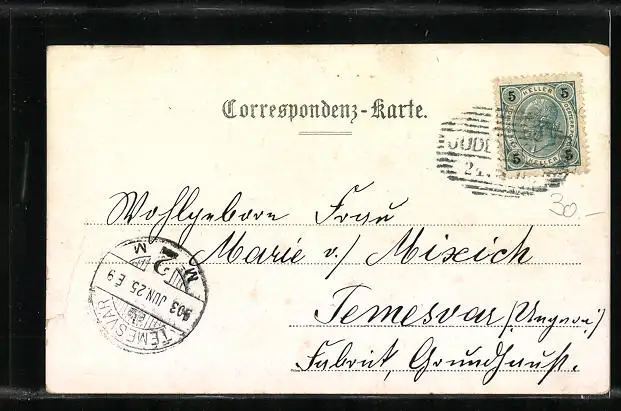 Correspondenz-Karte.
5 HELLER 5
5 HELLER 5
JUDE
24.
30.-
Wohlgeborn Frau
Marie v./ Mixich
Temesvar /Ungarn/
Fabrik, Grundhaus.
TEMESVAR
903 JUN 25 É 9
M 2 M